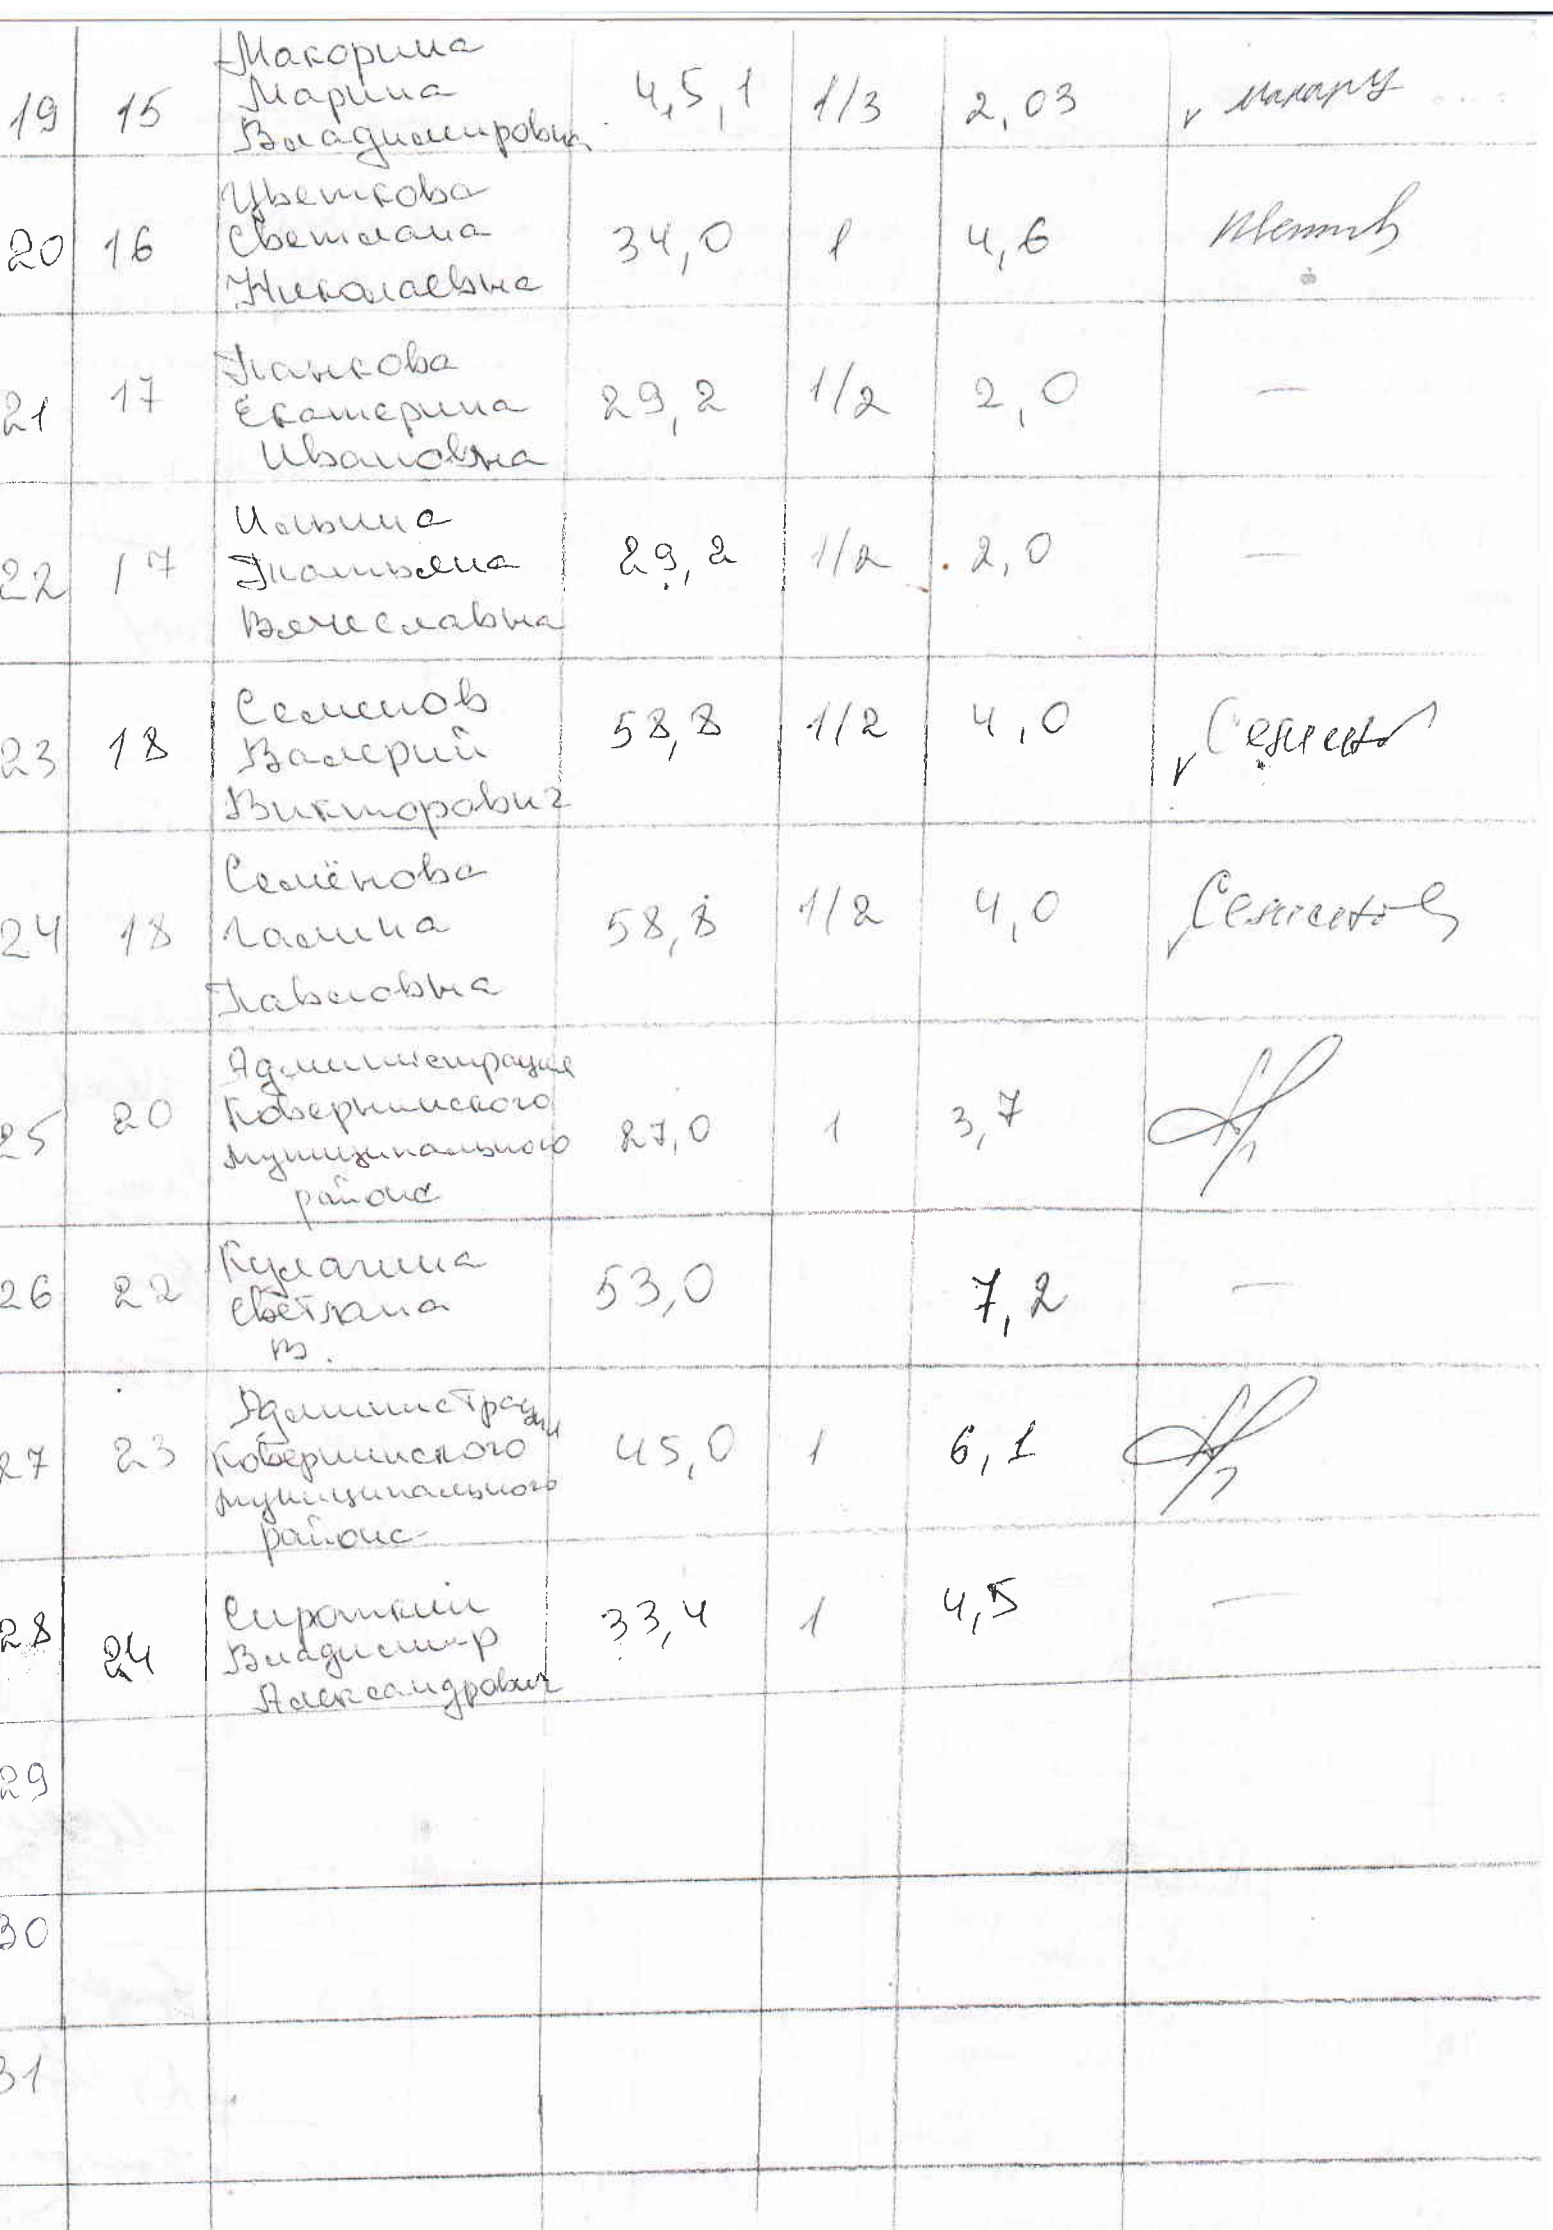 19 15 Макорина
Марина
Владимировна 4,5,1 1/3 2,03
20 16 Цветкова
Светлана
Николаевна 34,0 1 4,6
21 17 Панкова
Екатерина
Ивановна 29,2 1/2 2,0 —
22 17 Ильина
Татьяна
Вячеславна 29,2 1/2 2,0 —
23 18 Семенов
Валерий
Викторович 58,8 1/2 4,0
24 18 Семёнова
Галина
Павловна 58,8 1/2 4,0
25 20 Администрация
Ковернинского
муниципального
района 27,0 1 3,7
26 22 Кулагина
Светлана
В. 53,0 7,2 —
27 23 Администрации
Ковернинского
муниципального
района 45,0 1 6,1
28 24 Сироткин
Владимир
Александрович 33,4 1 4,5 —
29
30
31